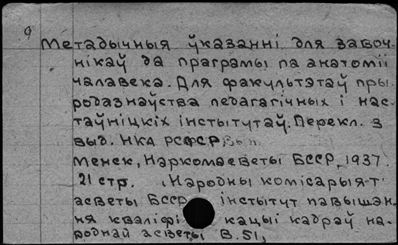 9
Метадычныя ўказанні для завоч-
нікаў да праграмы па анатоміі
чалавека. Для факультэтаў пры-
родазнаўства педагагічных і нас-
таўніцкіх інстытутаў. Перекл. з
выд. НКА РСФСР, Вып.
Менск, Наркомасветы БССР, 1937.
21 стр. (Народны комісарыя-т
асветы БССР інстытут павышэн-
ня кваліфі кацыі кадраў на-
роднай асветы В. 51,